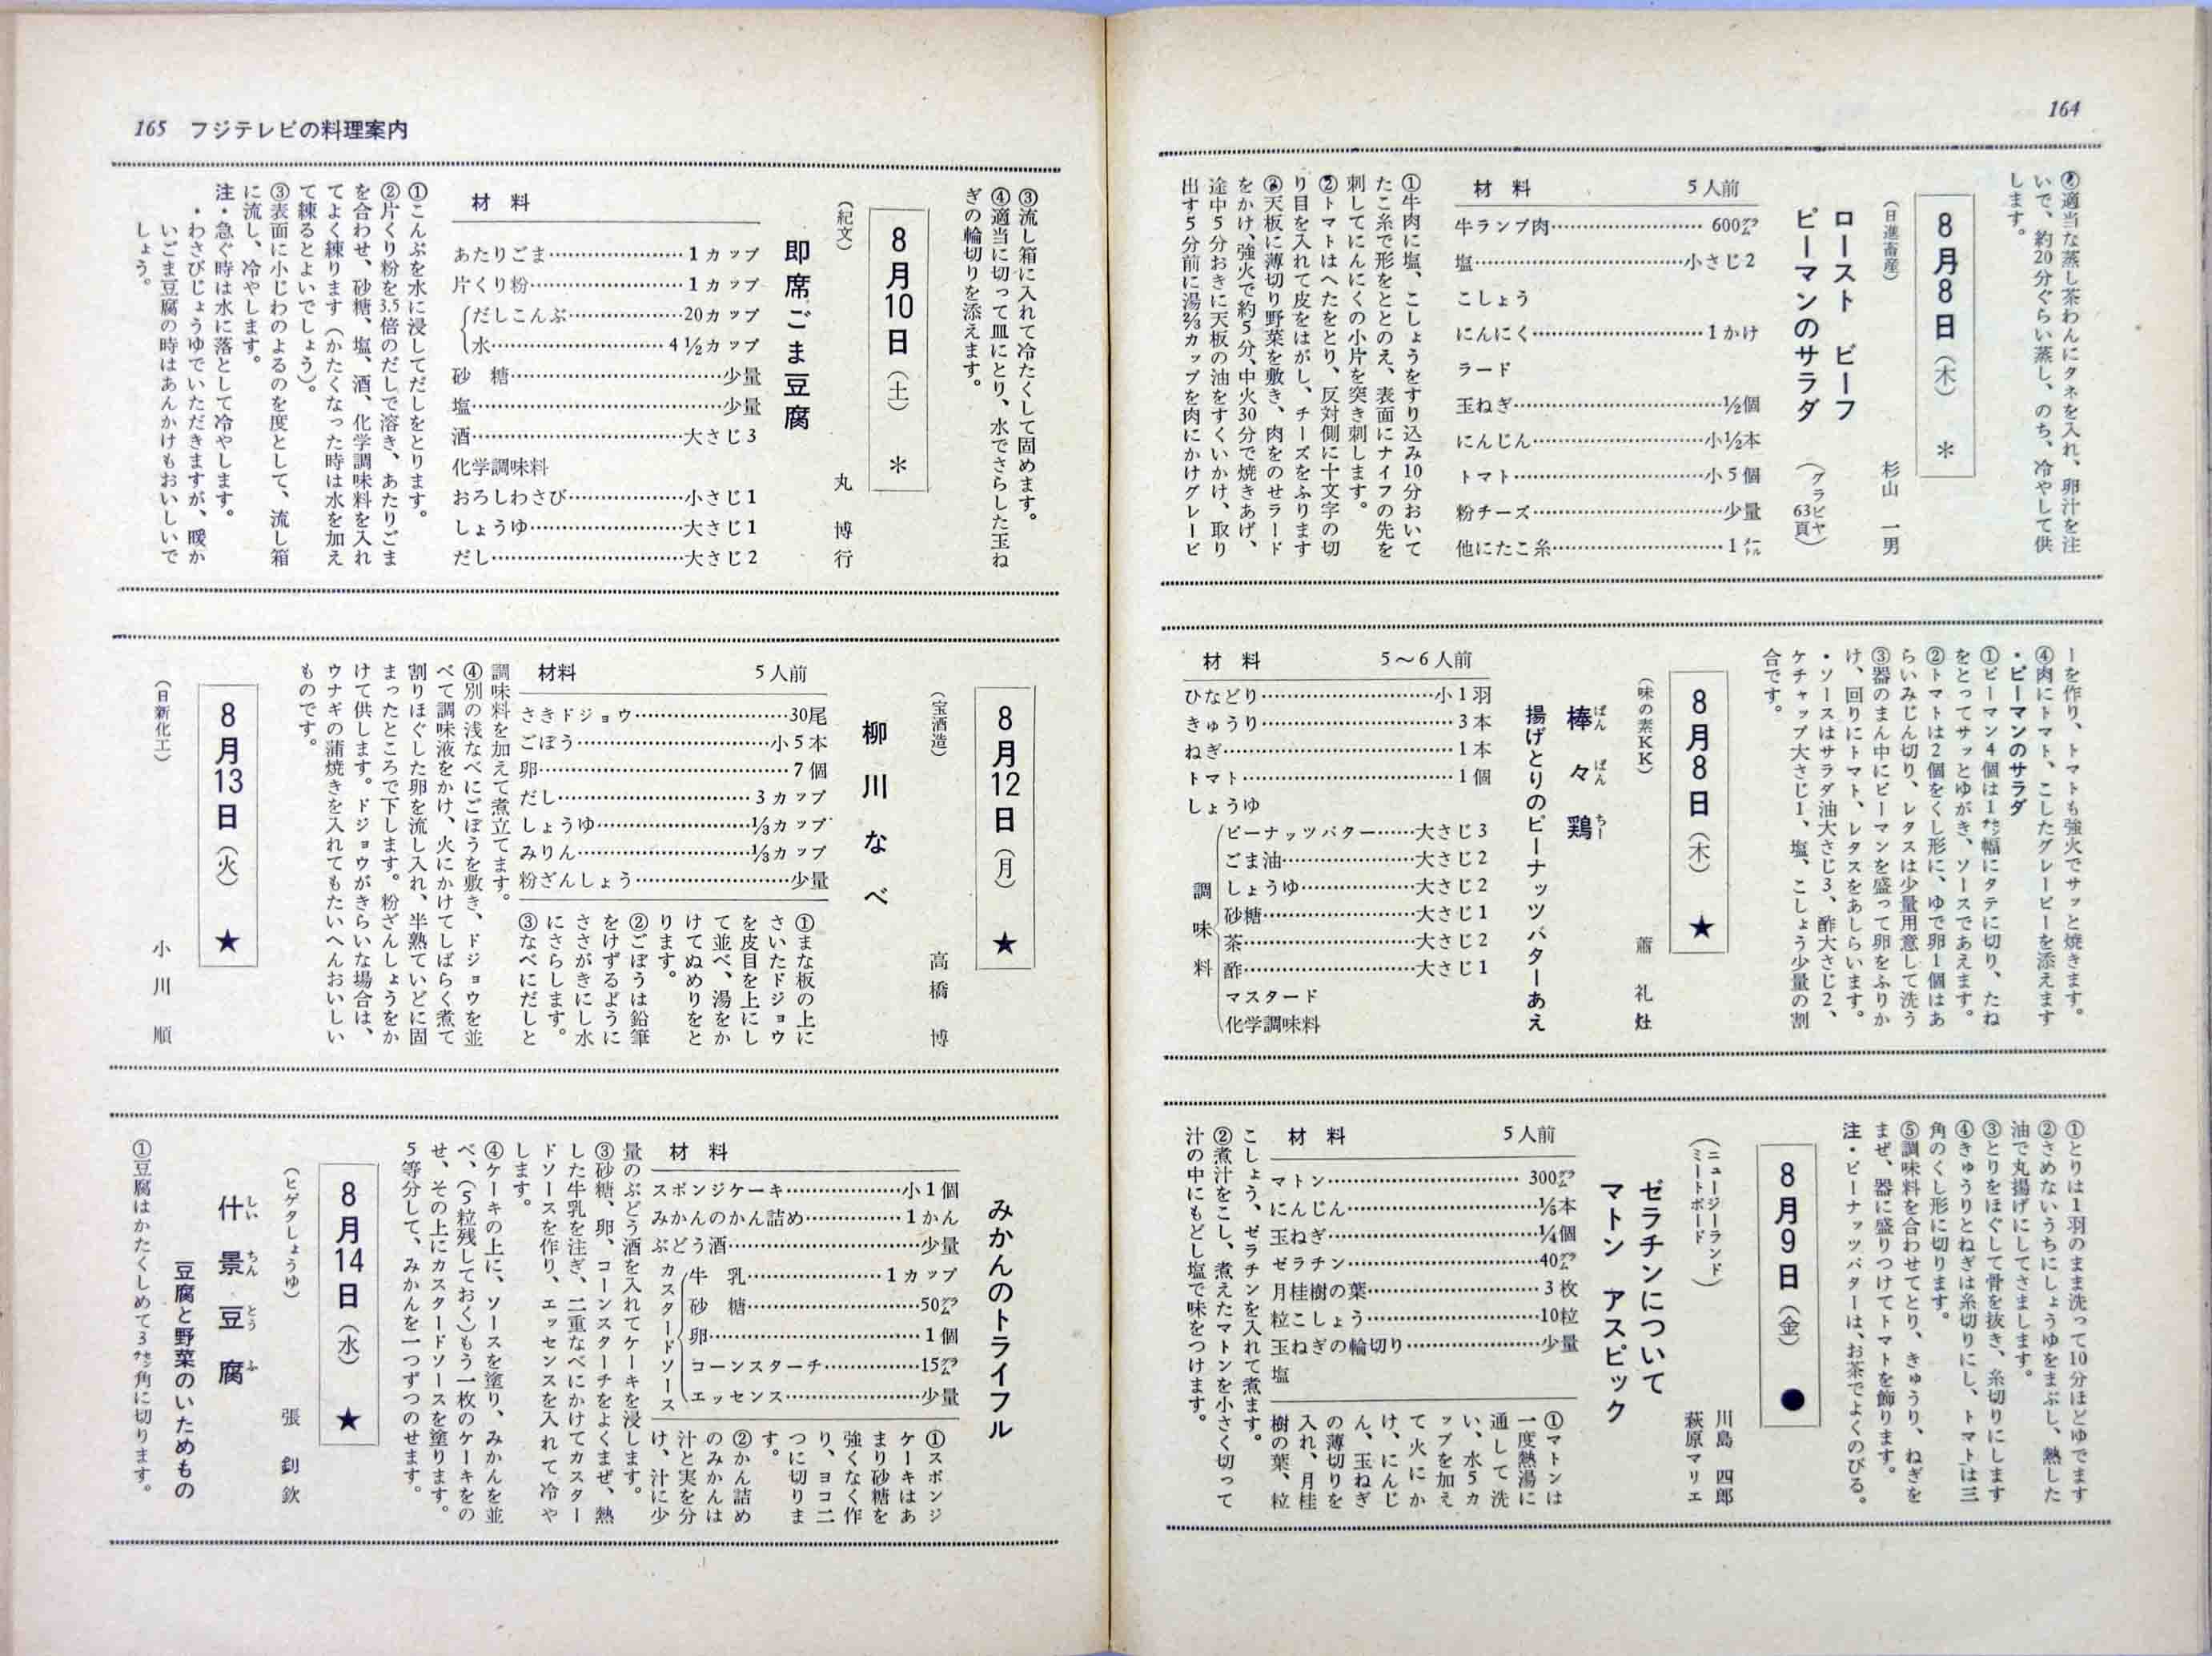 164
④適当な蒸し茶わんにタネを入れ、卵汁を注
いで、約20分ぐらい蒸し、のち、冷やして供
します。
8月8日（木）　＊
（日進畜産）　杉山　一男
ロースト　ビーフ
ピーマンのサラダ　（グラビヤ63頁）
材　料　5人前
牛ランプ肉……600㌘
塩……小さじ2
こしょう
にんにく……1かけ
ラード
玉ねぎ……½個
にんじん……小½本
トマト……小5個
粉チーズ……少量
他にたこ糸……1㍍
①牛肉に塩、こしょうをすり込み10分おいて
たこ糸で形をととのえ、表面にナイフの先を
刺してにんにくの小片を突き刺します。
②トマトはへたをとり、反対側に十文字の切
り目を入れて皮をはがし、チーズをふります
③天板に薄切り野菜を敷き、肉をのせラード
をかけ、強火で約5分、中火30分で焼きあげ、
途中5分おきに天板の油をすくいかけ、取り
出す5分前に湯⅔カップを肉にかけグレービ
ーを作り、トマトも強火でサッと焼きます。
④肉にトマト、こしたグレービーを添えます
・ピーマンのサラダ
①ピーマン4個は1㌢幅にタテに切り、たね
をとってサッとゆがき、ソースであえます。
②トマトは2個をくし形に、ゆで卵1個はあ
らいみじん切り、レタスは少量用意して洗う
③器のまん中にピーマンを盛って卵をふりか
け、回りにトマト、レタスをあしらいます。
・ソースはサラダ油大さじ3、酢大さじ2、
ケチャップ大さじ1、塩、こしょう少量の割
合です。
8月8日（木）　★
（味の素KK）　蕭　礼灶
棒々鶏
ばん　ばん　ちー
揚げとりのピーナッツバターあえ
材　料　5〜6人前
ひなどり……小1羽
きゅうり……3本
ねぎ……1本
トマト……1個
しょうゆ
調味料
ピーナッツバター……大さじ3
ごま油……大さじ2
しょうゆ……大さじ2
砂糖……大さじ1
茶……大さじ2
酢……大さじ1
マスタード
化学調味料
①とりは1羽のまま洗って10分ほどゆでます
②さめないうちにしょうゆをまぶし、熱した
油で丸揚げにしてさまします。
③とりをほぐして骨を抜き、糸切りにします
④きゅうりとねぎは糸切りにし、トマトは三
角のくし形に切ります。
⑤調味料を合わせてとり、きゅうり、ねぎを
まぜ、器に盛りつけてトマトを飾ります。
注・ピーナッツバターは、お茶でよくのびる。
8月9日（金）　●
（ニュージーランドミートボード）　川島　四郎
萩原マリエ
ゼラチンについて
マトン　アスピック
材　料　5人前
マトン……300㌘
にんじん……⅕本
玉ねぎ……¼個
ゼラチン……40㌘
月桂樹の葉……3枚
粒こしょう……10粒
玉ねぎの輪切り……少量
塩
①マトンは
一度熱湯に
通して洗
い、水5カ
ップを加え
て火にか
け、にんじ
ん、玉ねぎ
の薄切りを
入れ、月桂
樹の葉、粒
こしょう、ゼラチンを入れて煮ます。
②煮汁をこし、煮えたマトンを小さく切って
汁の中にもどし塩で味をつけます。
165　フジテレビの料理案内
③流し箱に入れて冷たくして固めます。
④適当に切って皿にとり、水でさらした玉ね
ぎの輪切りを添えます。
8月10日（土）　＊
（紀文）　丸　博行
即席ごま豆腐
材　料
あたりごま……1カップ
片くり粉……1カップ
だしこんぶ……20カップ
水……4½カップ
砂　糖……少量
塩……少量
酒……大さじ3
化学調味料
おろしわさび……小さじ1
しょうゆ……大さじ1
だし……大さじ2
①こんぶを水に浸してだしをとります。
②片くり粉を3.5倍のだしで溶き、あたりごま
を合わせ、砂糖、塩、酒、化学調味料を入れ
てよく練ります（かたくなった時は水を加え
て練るとよいでしょう）。
③表面に小じわのよるのを度として、流し箱
に流し、冷やします。
注・急ぐ時は水に落として冷やします。
・わさびじょうゆでいただきますが、暖か
いごま豆腐の時はあんかけもおいしいで
しょう。
8月12日（月）　★
（宝酒造）　高橋　博
柳川なべ
材料　5人前
さきドジョウ……30尾
ごぼう……小5本
卵……7個
だし……3カップ
しょうゆ……⅓カップ
みりん……⅓カップ
粉ざんしょう……少量
①まな板の上に
さいたドジョウ
を皮目を上にし
て並べ、湯をか
けてぬめりをと
ります。
②ごぼうは鉛筆
をけずるように
ささがきにし水
にさらします。
③なべにだしと
調味料を加えて煮立てます。
④別の浅なべにごぼうを敷き、ドジョウを並
べて調味液をかけ、火にかけてしばらく煮て
割りほぐした卵を流し入れ、半熟ていどに固
まったところで下します。粉ざんしょうをか
けて供します。ドジョウがきらいな場合は、
ウナギの蒲焼きを入れてもたいへんおいしい
ものです。
8月13日（火）　★
（日新化工）　小川　順
みかんのトライフル
材　料
スポンジケーキ……小1個
みかんのかん詰め……1かん
ぶどう酒……少量
カスタードソース
牛　乳……1カップ
砂　糖……50㌘
卵……1個
コーンスターチ……15㌘
エッセンス……少量
①スポンジ
ケーキはあ
まり砂糖を
強くなく作
り、ヨコ二
つに切りま
す。
②かん詰め
のみかんは
汁と実を分
け、汁に少
量のぶどう酒を入れてケーキを浸します。
③砂糖、卵、コーンスターチをよくまぜ、熱
した牛乳を注ぎ、二重なべにかけてカスター
ドソースを作り、エッセンスを入れて冷や
します。
④ケーキの上に、ソースを塗り、みかんを並
べ、（5粒残しておく）もう一枚のケーキをの
せ、その上にカスタードソースを塗ります。
5等分して、みかんを一つずつのせます。
8月14日（水）　★
（ヒゲタしょうゆ）　張　釗欽
什景豆腐
しい　ちん　とう　ふ
豆腐と野菜のいためもの
①豆腐はかたくしめて3㌢角に切ります。